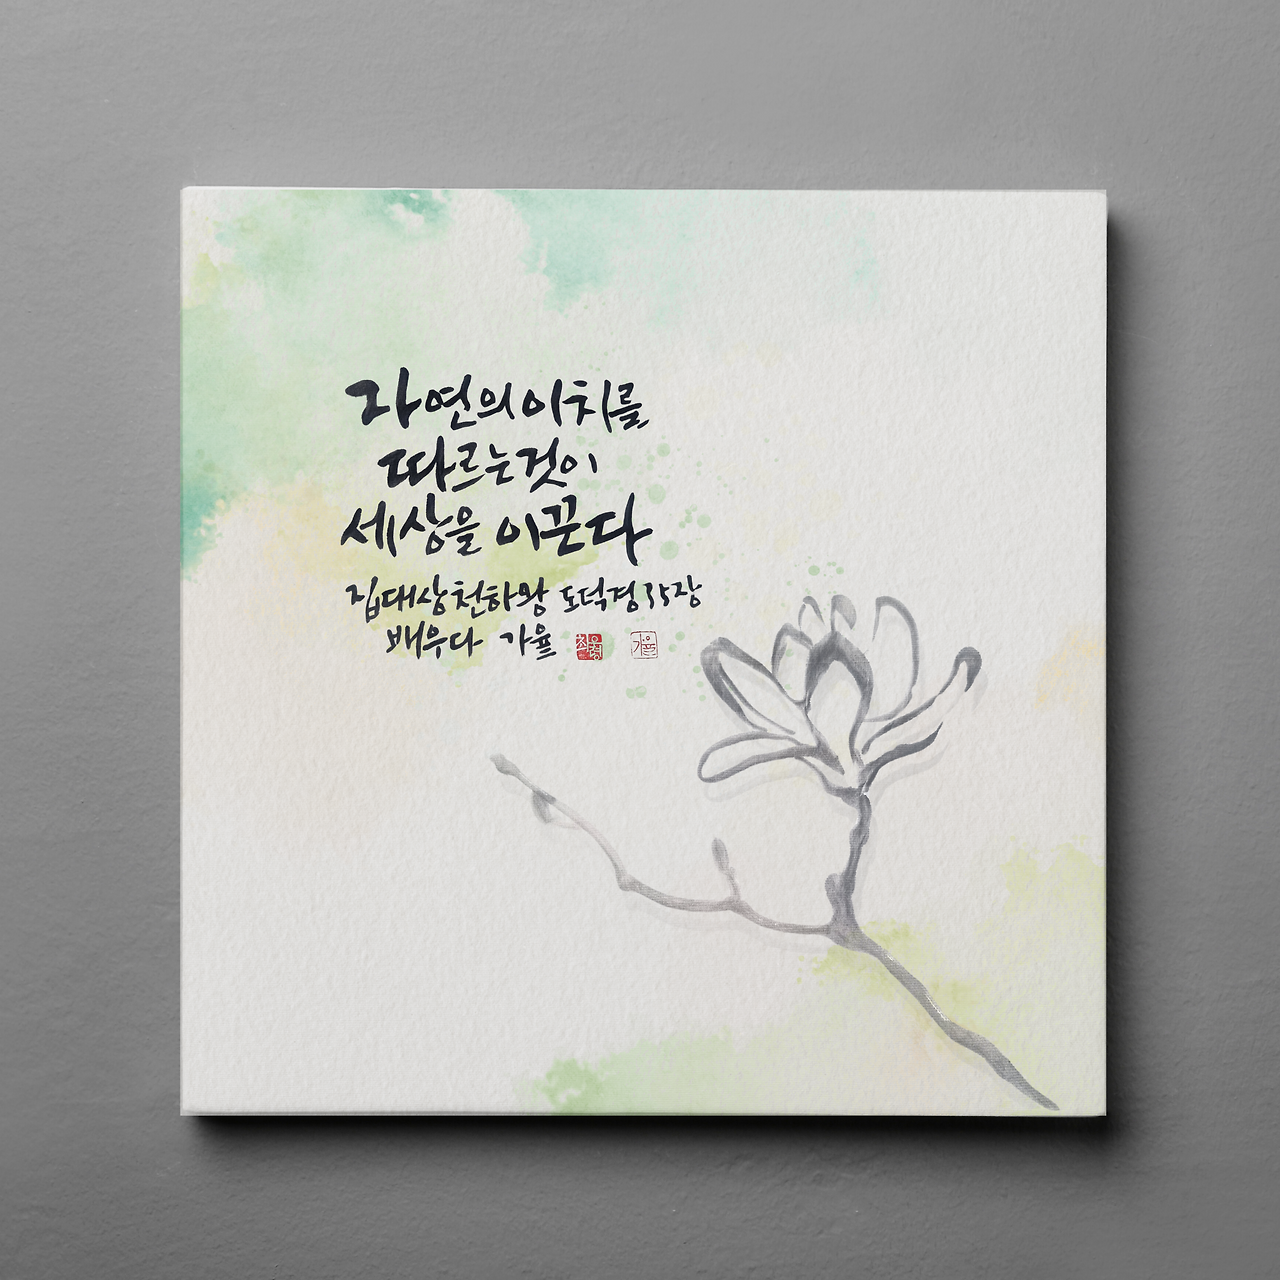 자연의 이치를
따르는 것이
세상을 이끈다
집대상천하왕 도덕경 35장
배우다 가율
가율